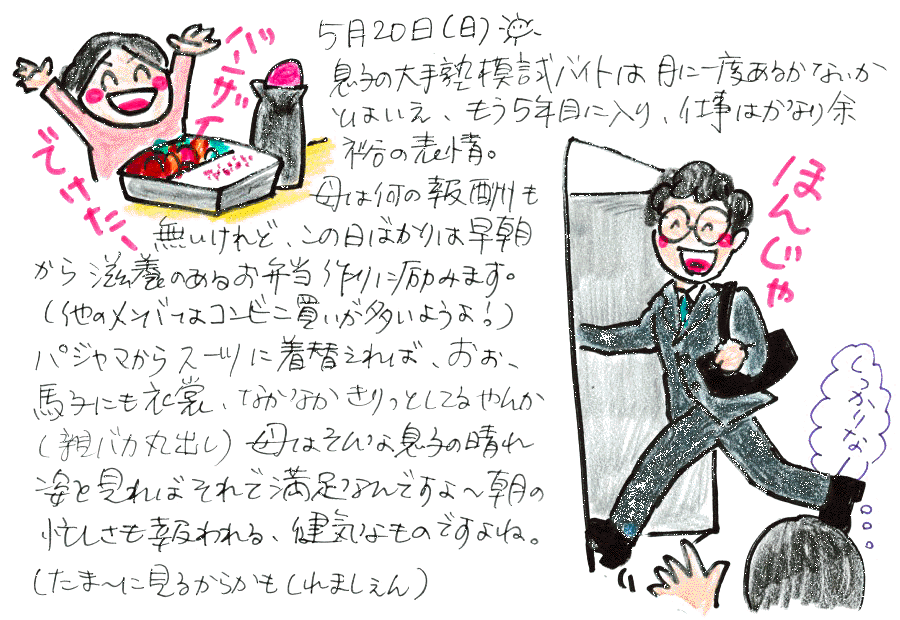 5月20日(日)
息子の大手塾模試バイトは月に一度あるかないか
とはいえ、もう5年目に入り、仕事はかなり余
裕の表情。
母は何の報酬も
無いけれど、この日ばかりは早朝
から滋養のあるお弁当作りに励みます。
(他のメンバーはコンビニ買いが多いようよ!)
パジャマからスーツに着替えれば、おぉ、
馬子にも衣裳、なかなかきりっとしてるやんか
(親バカ丸出し)母はそんな息子の晴れ
姿を見ればそれで満足なんですよ〜朝の
忙しさも報われる、健気なものですよね。
(たま〜に見るからかもしれましぇん)
バンザーイ
できたー
ほんじゃ
しっかりな